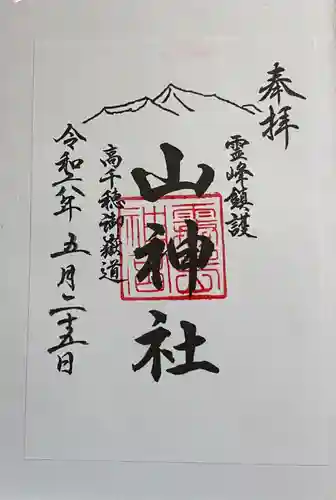 奉拝
霊峰鎮護
山神社
高千穂御嶽道
令和六年五月二十五日